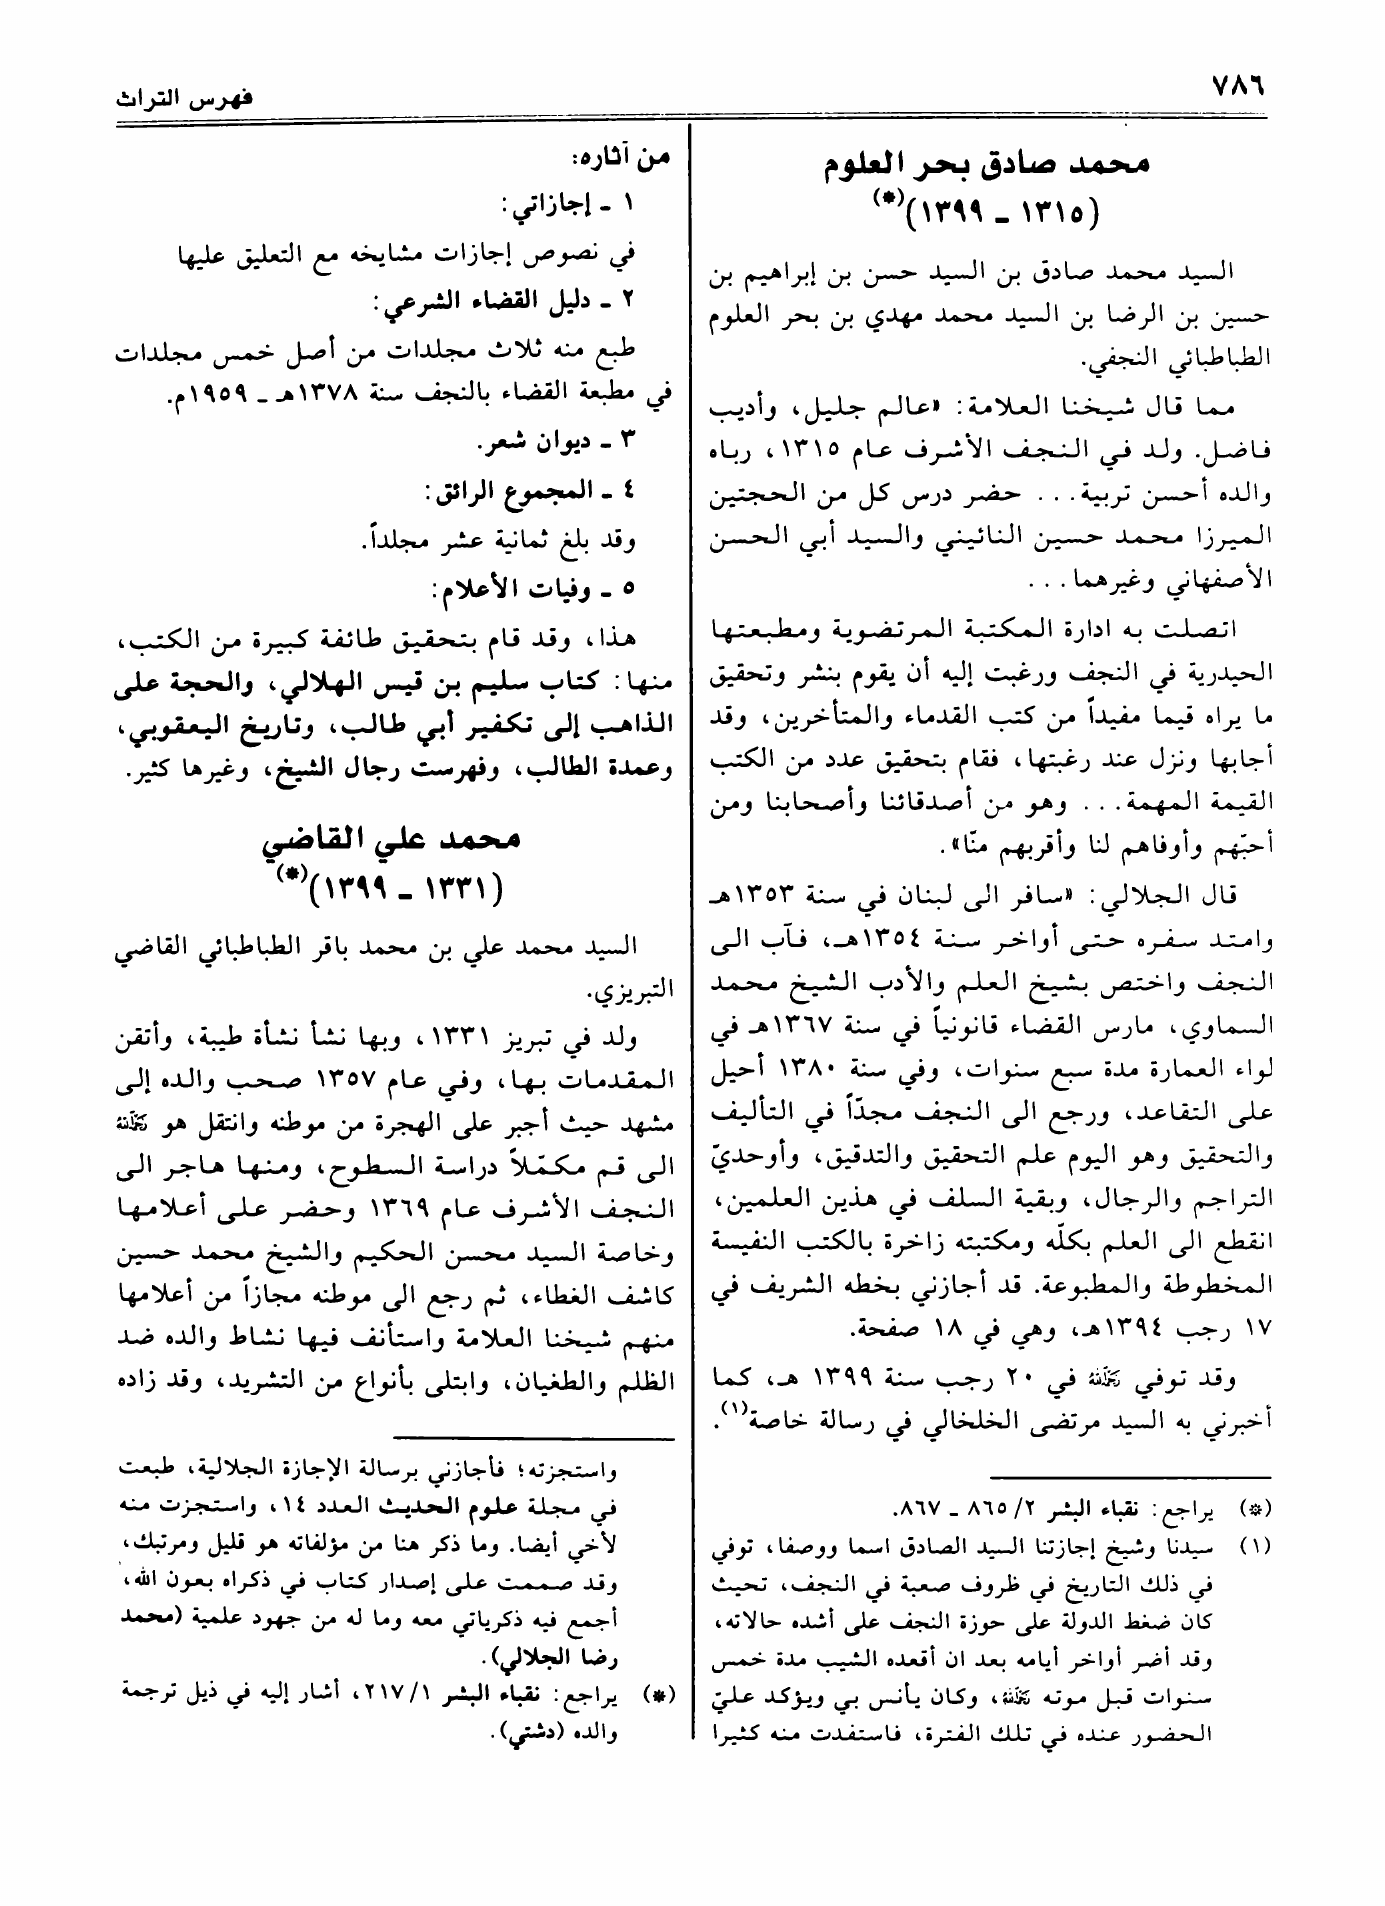 ٧٨٦
فهرس التراث
محمد صادق بحر العلوم
(١٣١٥ ـ ١٣٩٩)(*)
السيد محمد صادق بن السيد حسن بن إبراهيم بن
حسين بن الرضا بن السيد محمد مهدي بن بحر العلوم
الطباطبائي النجفي.
مما قال شيخنا العلامة: «عالم جليل، وأديب
فاضل. ولد في النجف الأشرف عام ١٣١٥، رباه
والده أحسن تربية... حضر درس كل من الحجتين
الميرزا محمد حسين النائيني والسيد أبي الحسن
الأصفهاني وغيرهما...
اتصلت به ادارة المكتبة المرتضوية ومطبعتها
الحيدرية في النجف ورغبت إليه أن يقوم بنشر وتحقيق
ما يراه قيما مفيداً من كتب القدماء والمتأخرين، وقد
أجابها ونزل عند رغبتها، فقام بتحقيق عدد من الكتب
القيمة المهمة... وهو من أصدقائنا وأصحابنا ومن
أحبّهم وأوفاهم لنا وأقربهم منّا».
قال الجلالي: «سافر الى لبنان في سنة ١٣٥٣هـ
وامتد سفره حتى أواخر سنة ١٣٥٤هـ، فآب الى
النجف واختص بشيخ العلم والأدب الشيخ محمد
السماوي، مارس القضاء قانونياً في سنة ١٣٦٧هـ في
لواء العمارة مدة سبع سنوات، وفي سنة ١٣٨٠ أحيل
على التقاعد، ورجع الى النجف مجدّاً في التأليف
والتحقيق وهو اليوم علم التحقيق والتدقيق، وأوحديّ
التراجم والرجال، وبقية السلف في هذين العلمين،
انقطع الى العلم بكلّه ومكتبته زاخرة بالكتب النفيسة
المخطوطة والمطبوعة. قد أجازني بخطه الشريف في
١٧ رجب ١٣٩٤هـ، وهي في ١٨ صفحة.
وقد توفي رحمه الله في ٢٠ رجب سنة ١٣٩٩ هـ، كما
أخبرني به السيد مرتضى الخلخالي في رسالة خاصة(١).
(*) يراجع: نقباء البشر ٢/ ٨٦٥ ـ ٨٦٧.
(١) سيدنا وشيخ إجازتنا السيد الصادق اسما ووصفا، توفي
في ذلك التاريخ في ظروف صعبة في النجف، تحيث
كان ضغط الدولة على حوزة النجف على أشده حالاته،
وقد أضر أواخر أيامه بعد ان أقعده الشيب مدة خمس
سنوات قبل موته رحمه الله، وكان يأنس بي ويؤكد عليّ
الحضور عنده في تلك الفترة، فاستفدت منه كثيرا
من آثاره:
١ ـ إجازاتي:
في نصوص إجازات مشايخه مع التعليق عليها
٢ ـ دليل القضاء الشرعي:
طبع منه ثلاث مجلدات من أصل خمس مجلدات
في مطبعة القضاء بالنجف سنة ١٣٧٨هـ ـ ١٩٥٩م.
٣ ـ ديوان شعر.
٤ ـ المجموع الرائق:
وقد بلغ ثمانية عشر مجلداً.
٥ ـ وفيات الأعلام:
هذا، وقد قام بتحقيق طائفة كبيرة من الكتب،
منها: كتاب سليم بن قيس الهلالي، والحجة على
الذاهب إلى تكفير أبي طالب، وتاريخ اليعقوبي،
وعمدة الطالب، وفهرست رجال الشيخ، وغيرها كثير.
محمد علي القاضي
(١٣٣١ ـ ١٣٩٩)(*)
السيد محمد علي بن محمد باقر الطباطبائي القاضي
التبريزي.
ولد في تبريز ١٣٣١، وبها نشأ نشأة طيبة، وأتقن
المقدمات بها، وفي عام ١٣٥٧ صحب والده إلى
مشهد حيث أجبر على الهجرة من موطنه وانتقل هو رحمه الله
الى قم مكمّلاً دراسة السطوح، ومنها هاجر الى
النجف الأشرف عام ١٣٦٩ وحضر على أعلامها
وخاصة السيد محسن الحكيم والشيخ محمد حسين
كاشف الغطاء، ثم رجع الى موطنه مجازاً من أعلامها
منهم شيخنا العلامة واستأنف فيها نشاط والده ضد
الظلم والطغيان، وابتلى بأنواع من التشريد، وقد زاده
واستجزته؛ فأجازني برسالة الإجازة الجلالية، طبعت
في مجلة علوم الحديث العدد ١٤، واستجزت منه
لأخي أيضا. وما ذكر هنا من مؤلفاته هو قليل ومرتبك،
وقد صممت على إصدار كتاب في ذكراه بعون الله،
أجمع فيه ذكرياتي معه وما له من جهود علمية (محمد
رضا الجلالي).
(*) يراجع: نقباء البشر ١/ ٢١٧، أشار إليه في ذيل ترجمة
والده (دشتي).